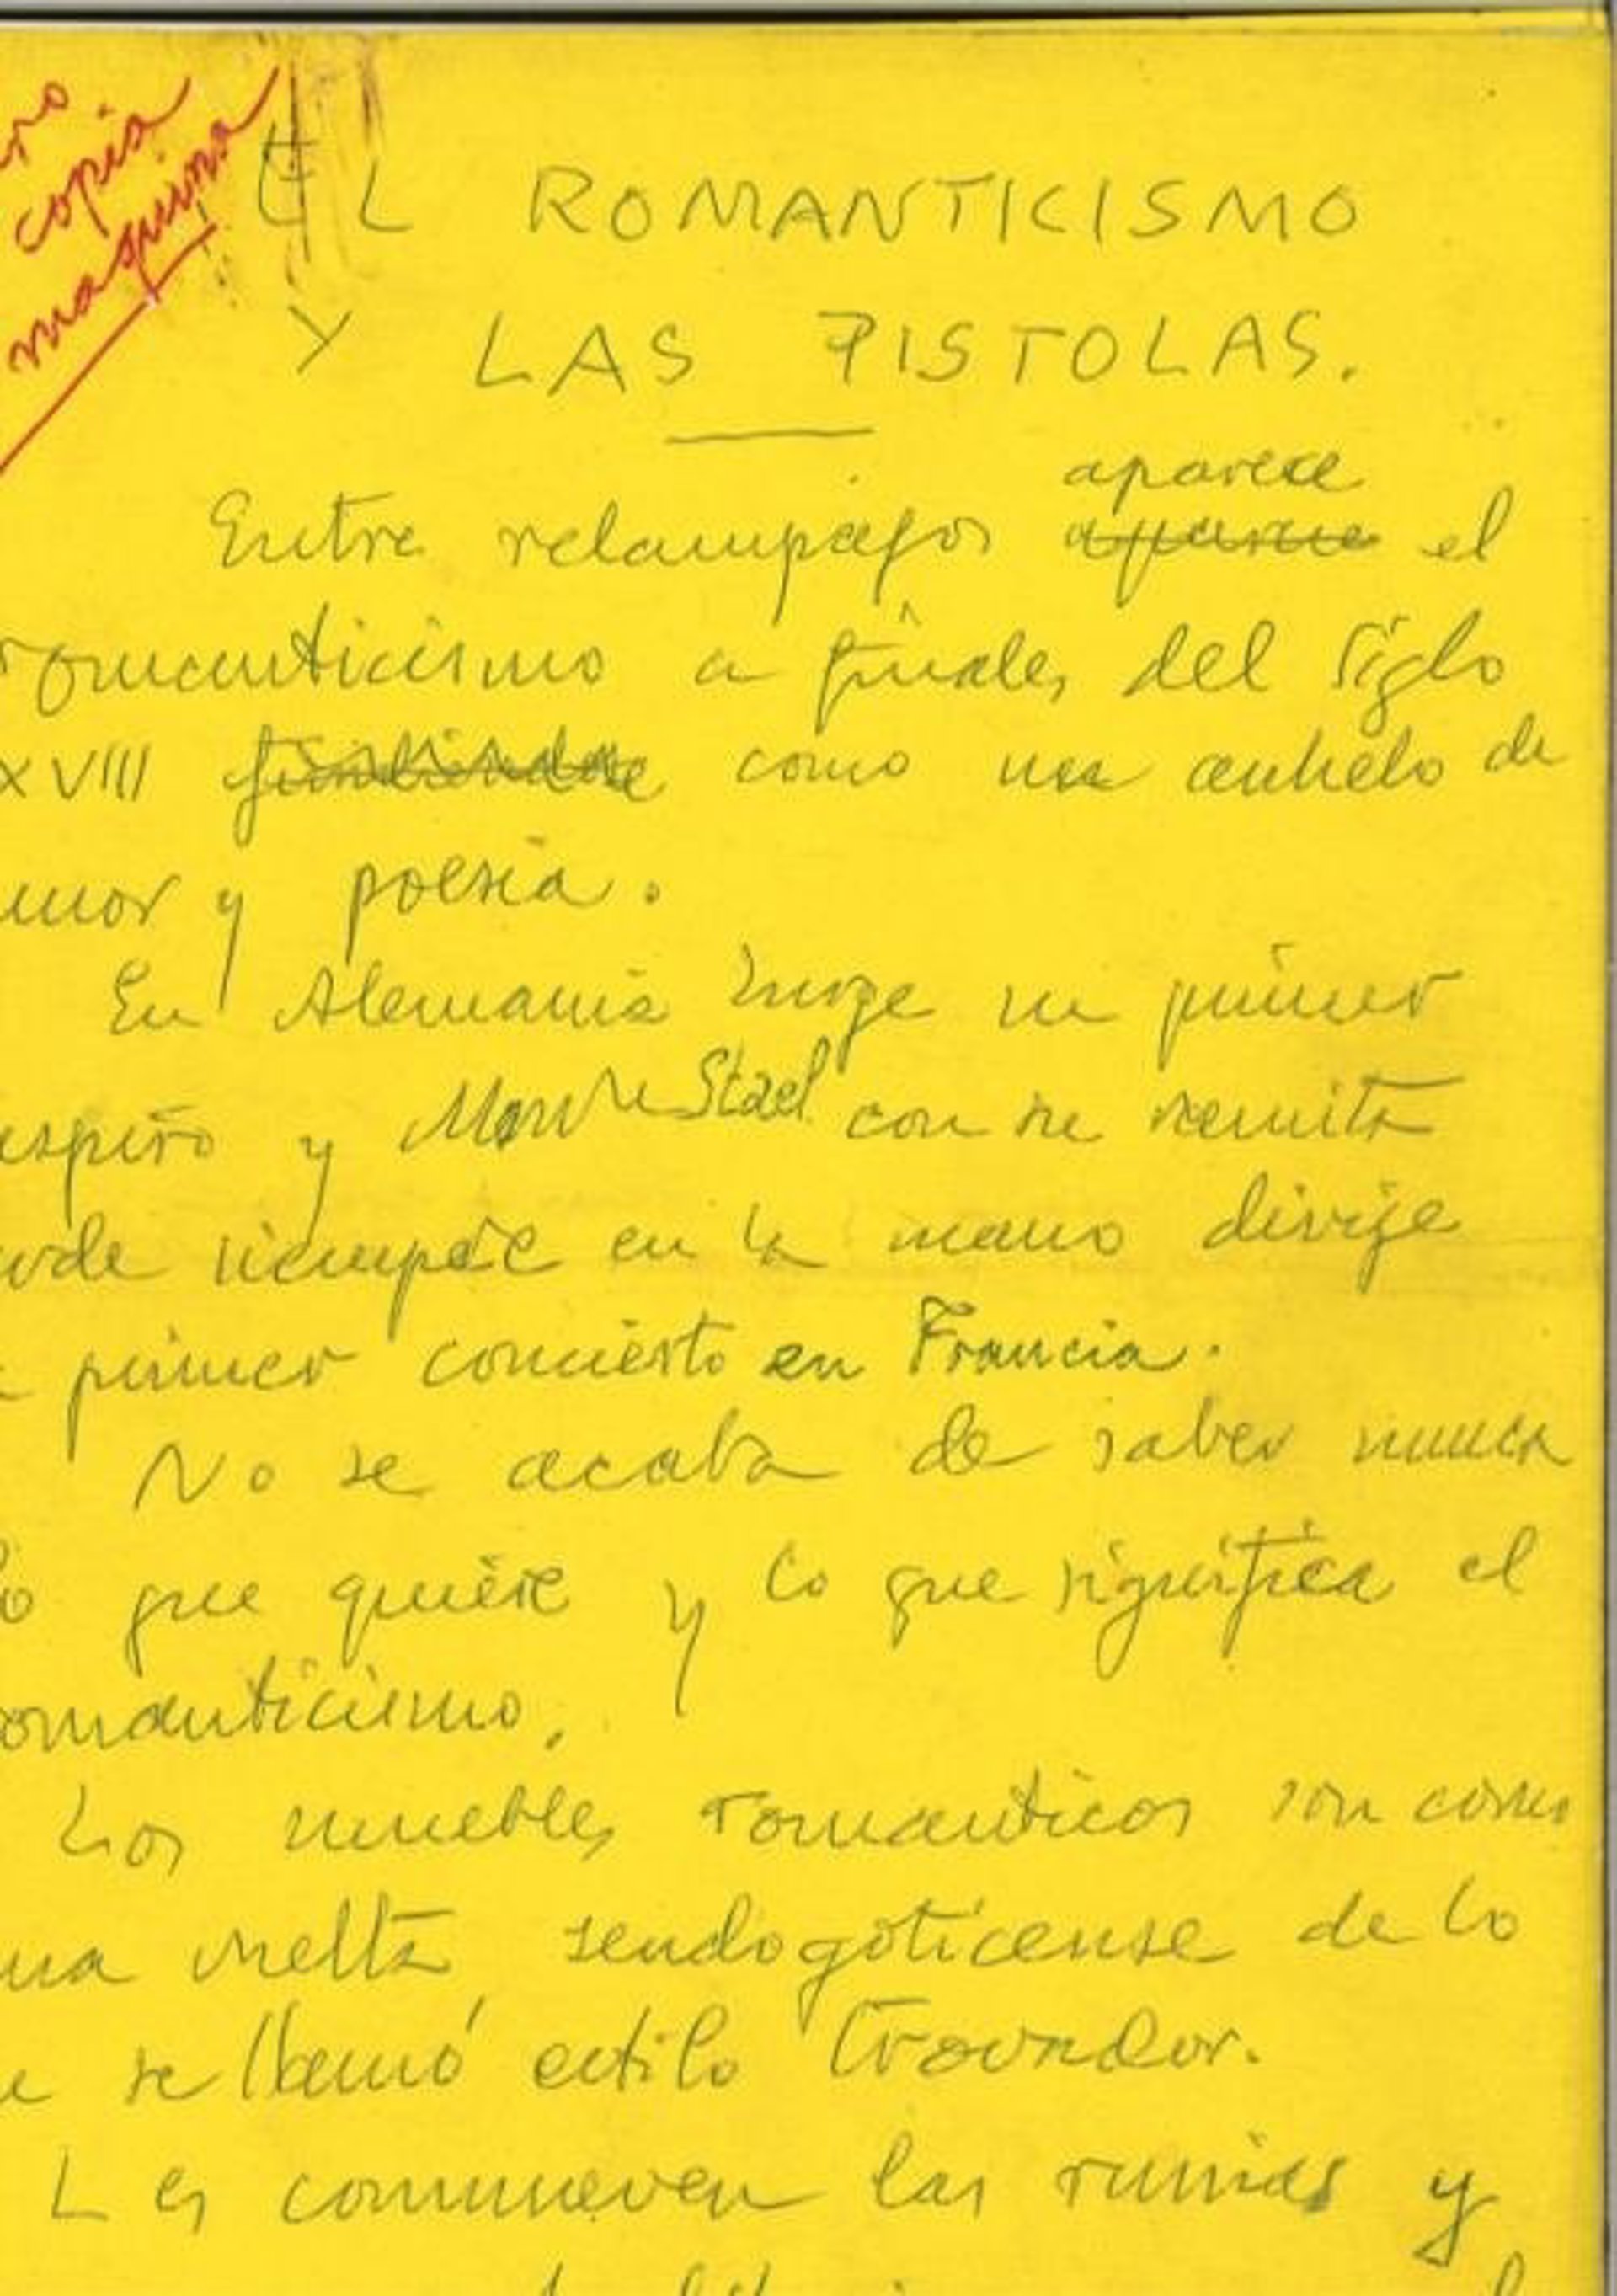 copia
maquina
EL ROMANTICISMO
Y LAS PISTOLAS.
aparece
Entre relampagos aparece el
romanticismo a finales del siglo
XVIII como un anhelo de
amor y poesia.
En Alemania surge su primer
suspiro y Stael con su ramita
verde siempre en la mano dirige
primer concierto en Francia.
No se acaba de saber nunca
lo que quiere y lo que significa el
romanticismo.
Los muebles romanticos son como
una vuelta seudogoticense de lo
que se llamó estilo trovador.
Les conmueven las ruinas y